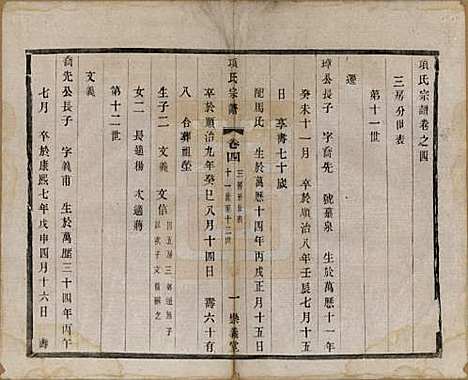 項氏宗譜卷之四
三房分世表
第十一世
遷
璋公長子 字喬先 號臺泉 生於萬曆十一年
癸未十一月 卒於順治八年壬辰七月十五
日 享壽七十歲
配馬氏 生於萬曆十四年丙戌正月十五日
項氏宗譜 卷四 三房世表 十一世至十二世 一 樂義堂
卒於順治九年癸巳八月十四日 壽六十有
八 合葬祖塋
生子二 文義 文信
女二 長適楊 次適蔣
文義
第十二世
喬先公長子 字義甫 生於萬曆三十四年丙午
七月 卒於康熙七年戊申四月十六日 壽